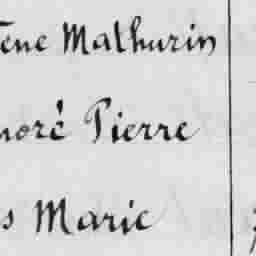 ene Mathurin
noré Pierre
s Marie